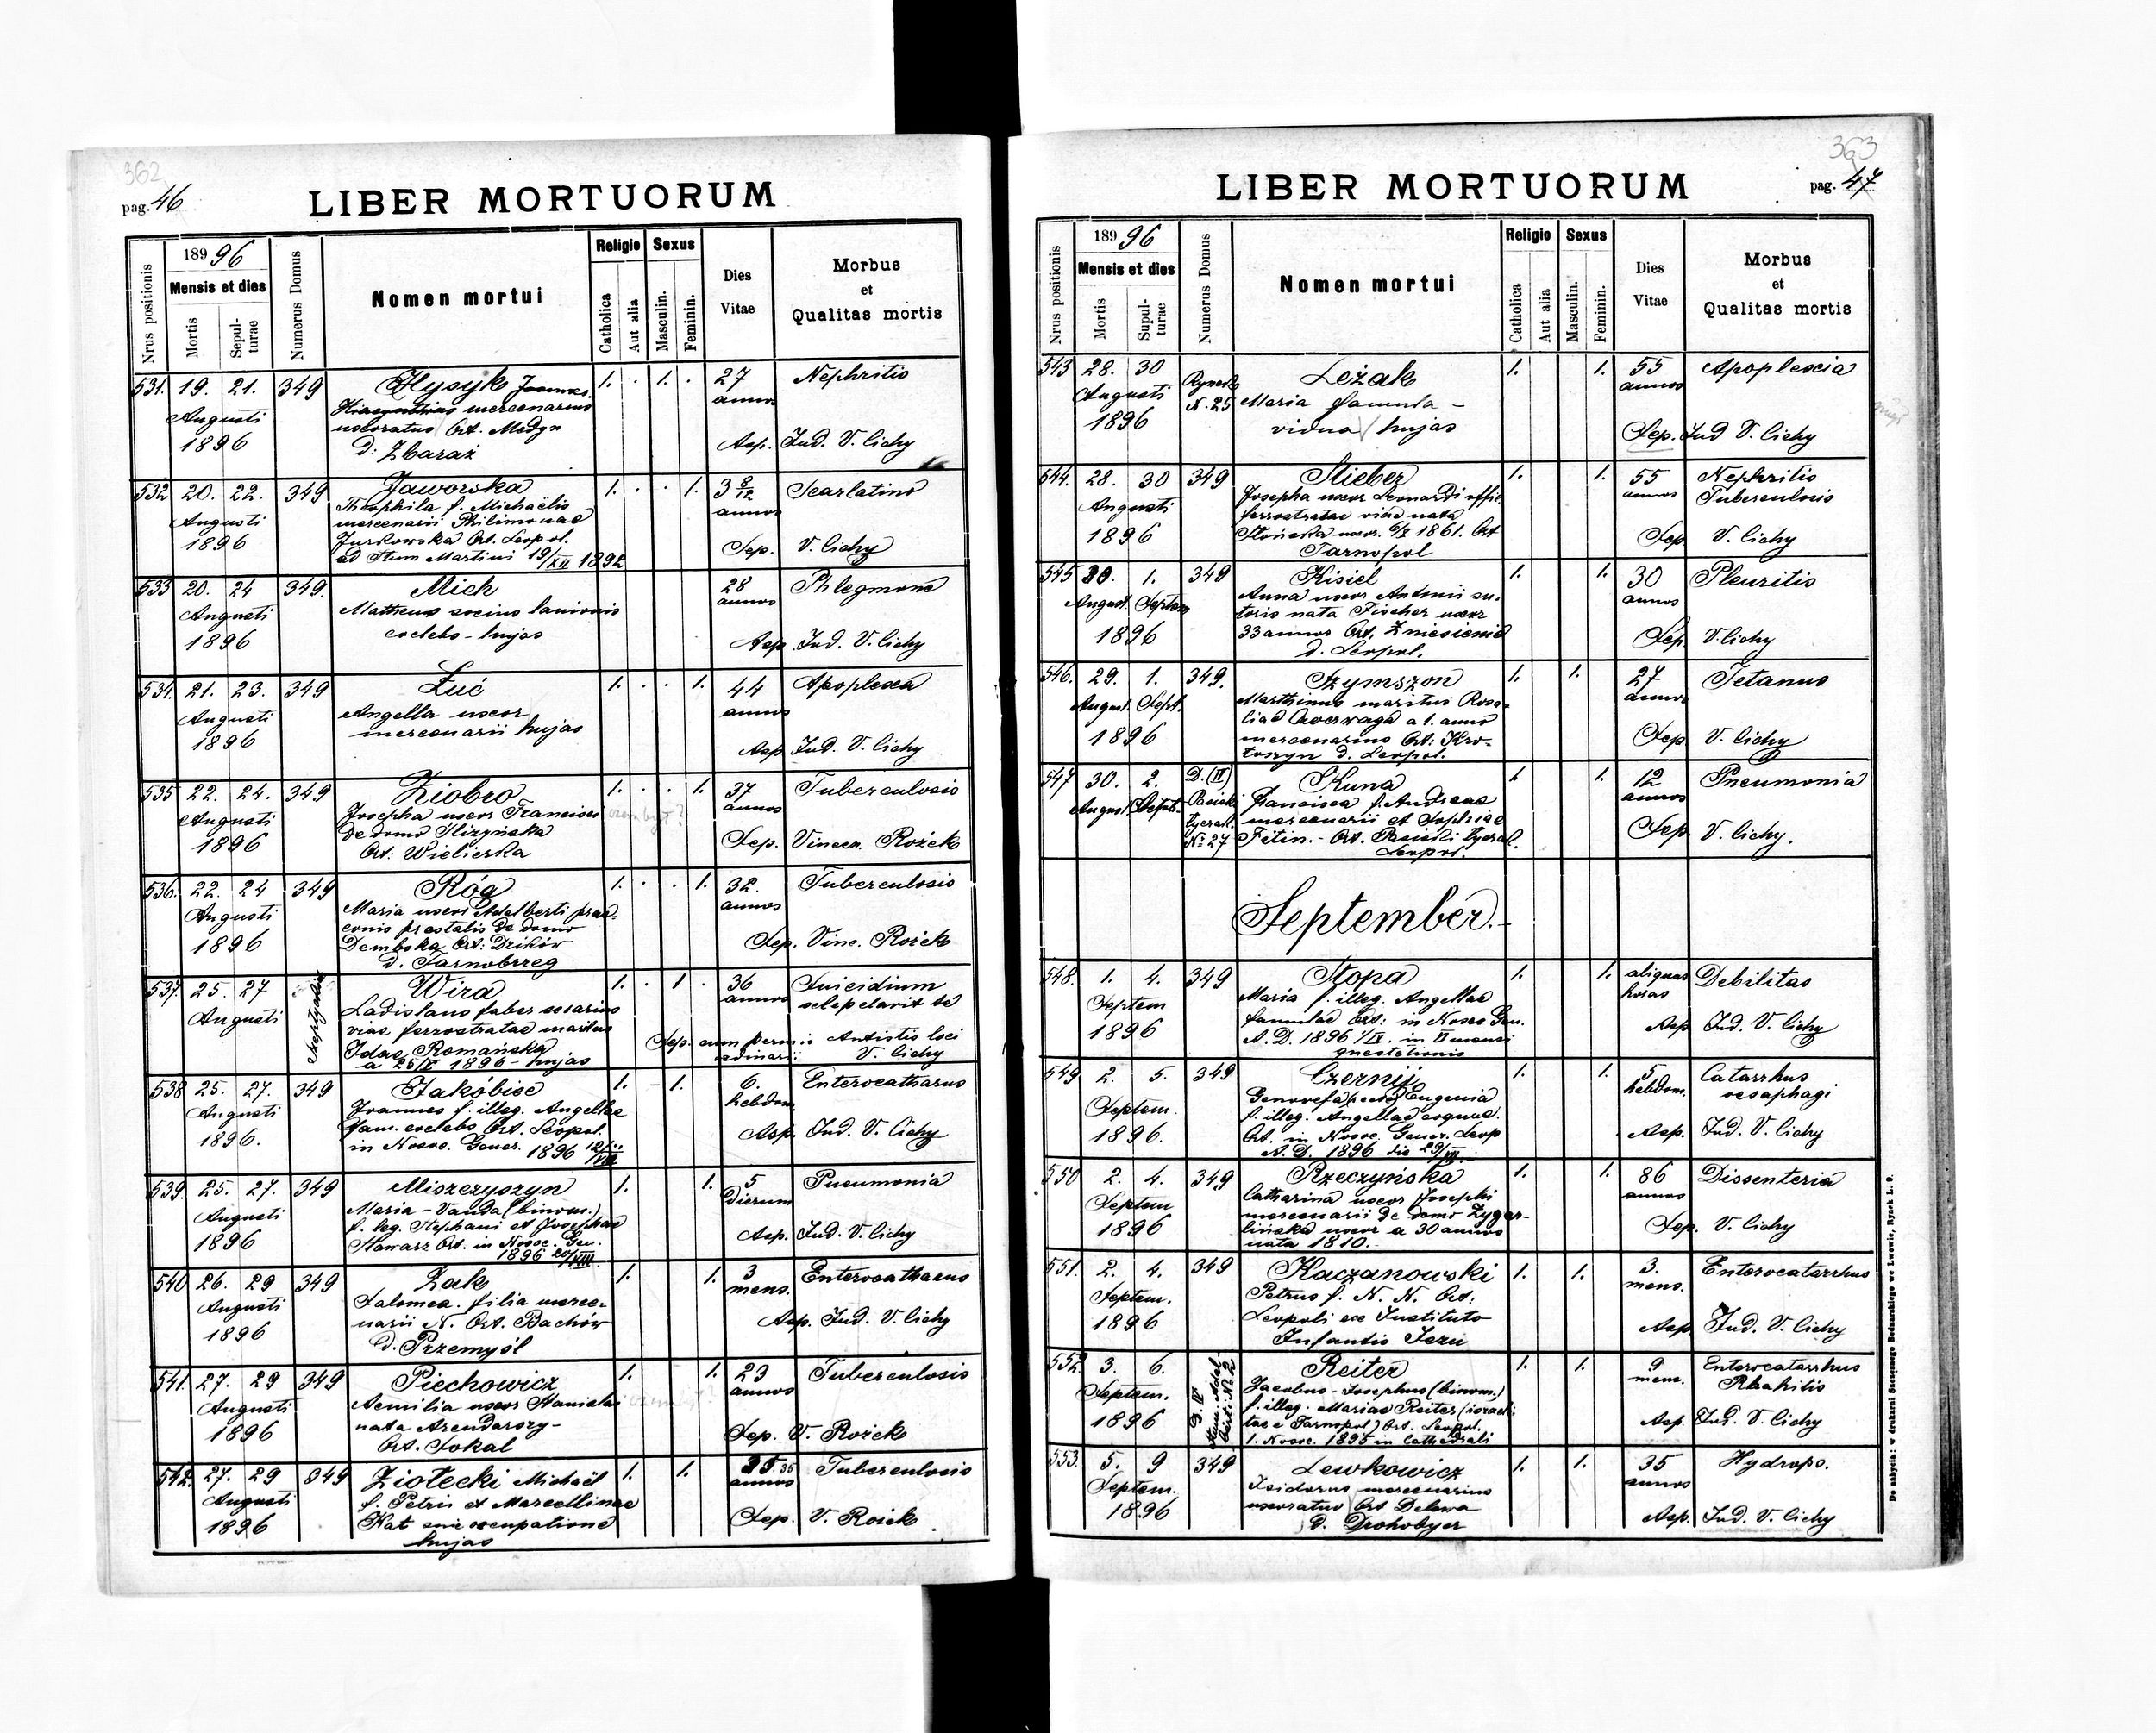 362
pag. 46
LIBER MORTUORUM
Nrus positionis
1896
Mensis et dies
Mortis
Sepul-
turae
Numerus Domus
Nomen mortui
Religio
Catholica
Aut alia
Sexus
Masculin.
Feminin.
Dies
Vitae
Morbus
et
Qualitas mortis
531. 19. 21. 349 Hysyk 1. . 1. . 27 Nephritis
annos
mercenarius
Augusti uxoratus Ort. Medyn
1896 d: Zbaraż Asp. Ind. V. Cichy
532 20. 22. 349 Jaworska 1. . . 1. 3 8/12 Scarlatina
Theophila f. Michaëlis annos
Augusti mercenarii Philimonae
1896 Jurkowska Ort. Leopol. Sep. V. Cichy
ad Stum Martini 19/XII 1892
533 20. 24 349. Mich 28 Phlegmone
Augusti Matheus socius lanionis annos
1896 coelebs - hujas Asp. Ind. V. Cichy
534. 21. 23. 349 Łuć 1. . . 1. 44 Apoplexia
Augusti Angella uxor annos
1896 mercenarii hujas Asp. Ind. V. Cichy
535 22. 24. 349 Ziobro 1. . . 1. 37 Tuberculosis
Augusti Josepha uxor Francisci annos
de domo Slizyńska
1896 Ort: Wieliczka Sep. Vincen. Rożek
536. 22. 24 349 Róg 1. . . 1. 32. Tuberculosis
Augusti Maria uxor Adalberti prae- annos
conis postalis de domo
1896 Dembska Ort: Dzików Sep. Vinc. Rożek
d. Tarnobrzeg
537. 25. 27 Wira 1. . 1 . 36 Suicidium
Augusti Ladislaus faber serarius annos
viae ferrostratae maritus
Idae Romańska Sep:
a 25/V 1896 - hujas V. Cichy
538 25. 27. 349 Jakóbiec 1. - 1. 6. Enterocatharus
Augusti Joannes f. illeg. Angellae hebdom.
1896. fam. coelebs Ort. Leopol. Asp. Ind. V. Cichy
in Nosoc. Gener. 1896 12/VII
539. 25. 27. 349 Miszczyszyn 1. 1. 5 Pneumonia
Augusti Maria - Vanda (binom.) Dierum
f. leg. Stephani et Josephae
1896 Hamarz Ort. in Nosoc. Gen. Asp. Ind. V. Cichy
1896 20/VIII.
540 26. 29 349 Żak 1. 1. 3 Enterocatharus
Augusti Salomea filia merce- mens.
1896 narii N. Ort. Bachów Asp. Ind. V. Cichy
d. Przemyśl
541. 27. 29 349 Piechowicz 1. 1. 23 Tuberculosis
Augusti Aemilia uxor Stanislai annos
nata Arendarczy-
1896 Ort. Sokal Sep. V. Rożek
542. 27. 29 349 Ziołecki Michaël 1. 1. 35 Tuberculosis
Augusti f. Petris et Marcellinae annos
1896 Nat. sine occupatione Sep. V. Rożek
hujas
363
LIBER MORTUORUM
pag. 47
Nrus positionis
1896
Mensis et dies
Mortis
Supul-
turae
Numerus Domus
Nomen mortui
Religio
Catholica
Aut alia
Sexus
Masculin.
Feminin.
Dies
Vitae
Morbus
et
Qualitas mortis
543 28. 30 Rynek Leżak 1. 1. 55 Apoplexia
Augusti N. 25 Maria famula - annos
1896 vidua hujas Sep. Ind V. Cichy
544. 28. 30 349 Stieber 1. 1. 55 Nephritis
Josepha uxor Leonardi offic. annos Tuberculosis
Augusti ferrostratae viae nata
1896 Słońska uxor. 6/X 1861. Ort Sep V. Cichy
Tarnopol
545 30. 1. 349 Kisiel 1. 1. 30 Pleuritis
August. Septem Anna uxor Antonii su- annos
toris nata Fischer uxor
1896 33 annos Ort. Zniesienie Sep. V. Cichy
d. Leopol.
546. 29. 1. 349. Szymszon 1. 1. 27 Tetanus
August. Sept. Marthinus maritus Rosa- annos
liae a 1. anno
1896 mercenarius Ort: Kro- Sep V. Cichy
toszyn d. Leopol.
547 30. 2. D. (II) Kuna 1. 1. 12 Pneumonia
August. Sept. Pasieki Francisca f. Andreae annos
Łyczak. mercenarii et Sophiae
No 27 Fitin. - Ort. Pasieki Łyczak. Sep V. Cichy.
Leopol.
September.-
548. 1. 4. 349 Stopa 1. 1. aliquas Debilitas
Septem Maria f. illeg. Angellae horas
1896 famulae Ort: in Nosoc Gen. Asp Ind. V. Cichy
A. D. 1896 1/IX. in VI mensi
guestationis
549 2. 5. 349 Czernij 1. 1. 5 Catarrhus
Septem. Genovefa Eugenia hebdom. oesaphagi
f. illeg. Angellae coquae.
1896. Ort. in Nosoc. Gener. Leop Asp. Ind. V. Cichy
A. D. 1896 die 29/VII.-
550 2. 4. 349 Rzeczyńska 1. 1. 86 Dissenteria
Septem Catharina uxor Josephi annos
mercenarii de domo Zyger-
1896 lińska uxor a 30 annos Sep. V. Cichy
nata 1810.-
551. 2. 4. 349 Kaczanowski 1. 1. 3. Enterocatarrhus
Septem. Petrus f. N. N. Ort: mens.
1896 Leopoli ex Instituto Asp Ind. V. Cichy
Infantis Jezu
552. 3. 6. Reiter 1. 1. 9 Enterocatarrhus
Septem. Jacobus - Josephus (binom.) mens. Rhahitis
f. illeg. Mariae Reiter (israeli-
1896 tae e Tarnopol) Ort. Leopol. Asp. Ind. V. Cichy
1. Nosoc. 1895 in Cathedrali
553. 5. 9 349 Lewkowicz 1. 1. 35 Hydrops.
Septem. Isidorus mercenarius annos
1896 uxoratus Ort Delawa Asp. Ind. V. Cichy
d. Drohobycz
De nabycia: w drukarni Szczęsnego Bednarskiego we Lwowie, Rynek L. 9.